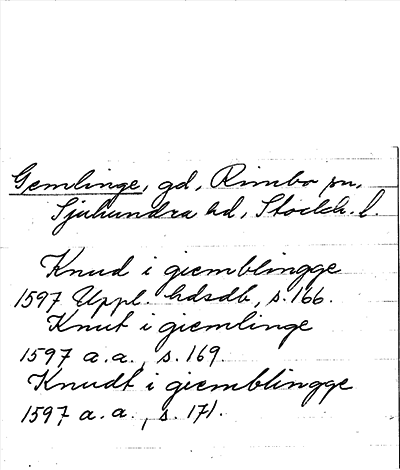 Gemlinge, gd, Rimbo sn,
Sjuhundra hd, Stockh. l.
Knud i giemblingge
1597 Uppl. hdsdb, s. 166.
Knut i giemlinge
1597 a. a., s. 169.
Knudt i giemblingge
1597 a. a., s. 171.